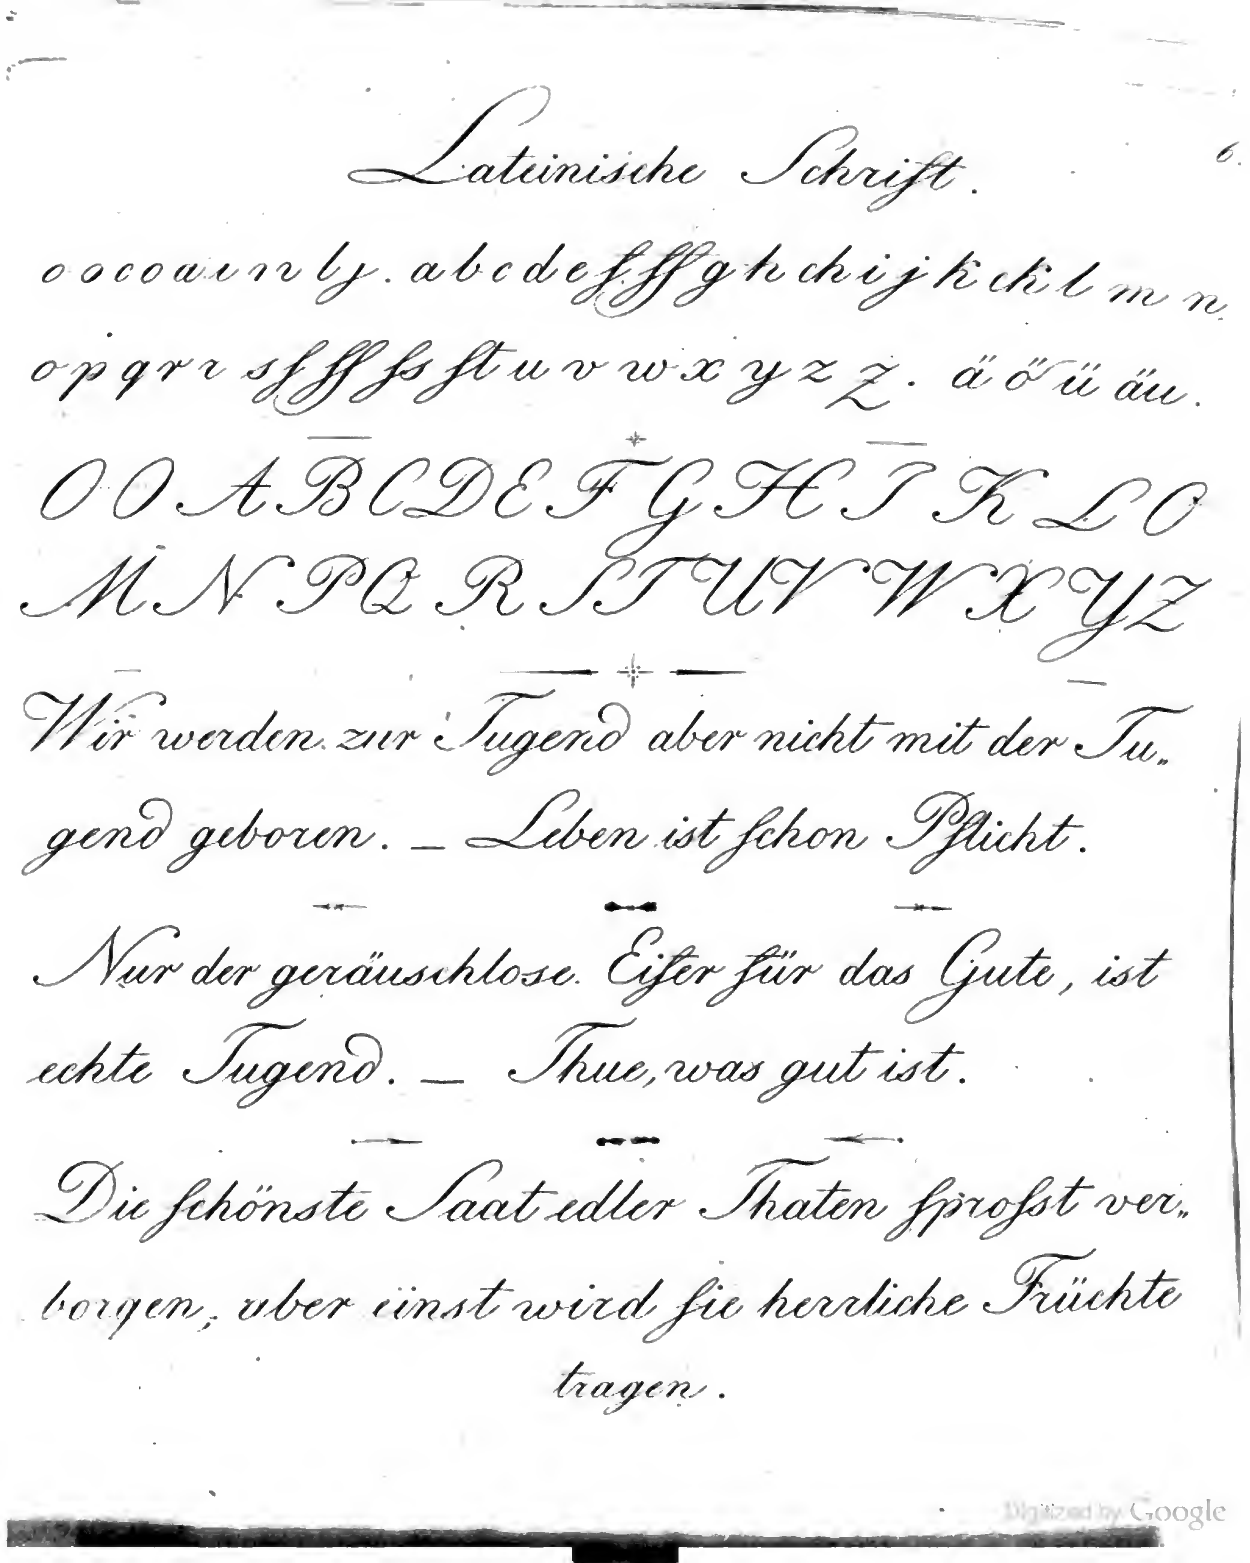 Lateinische Schrift.
6.
o o c o a ı n lj. a b c d e f ff g h ch i j k ck l m n.
o p q r r s ſ ſſ ſs ſt u v w x y z z. ä ö ü äu.
O O A B C D E F G H I K L O
M N P Q R S T U V W X Y Z
Wir werden zur Tugend aber nicht mit der Tu„
gend geboren. – Leben ist ſchon Pflicht.
Nur der geräuschlose Eifer für das Gute, ist
echte Tugend. – Thue, was gut ist.
Die ſchönste Saat edler Thaten ſproſst ver„
borgen; aber einst wird ſie herrliche Früchte
tragen.
Digitized by Google